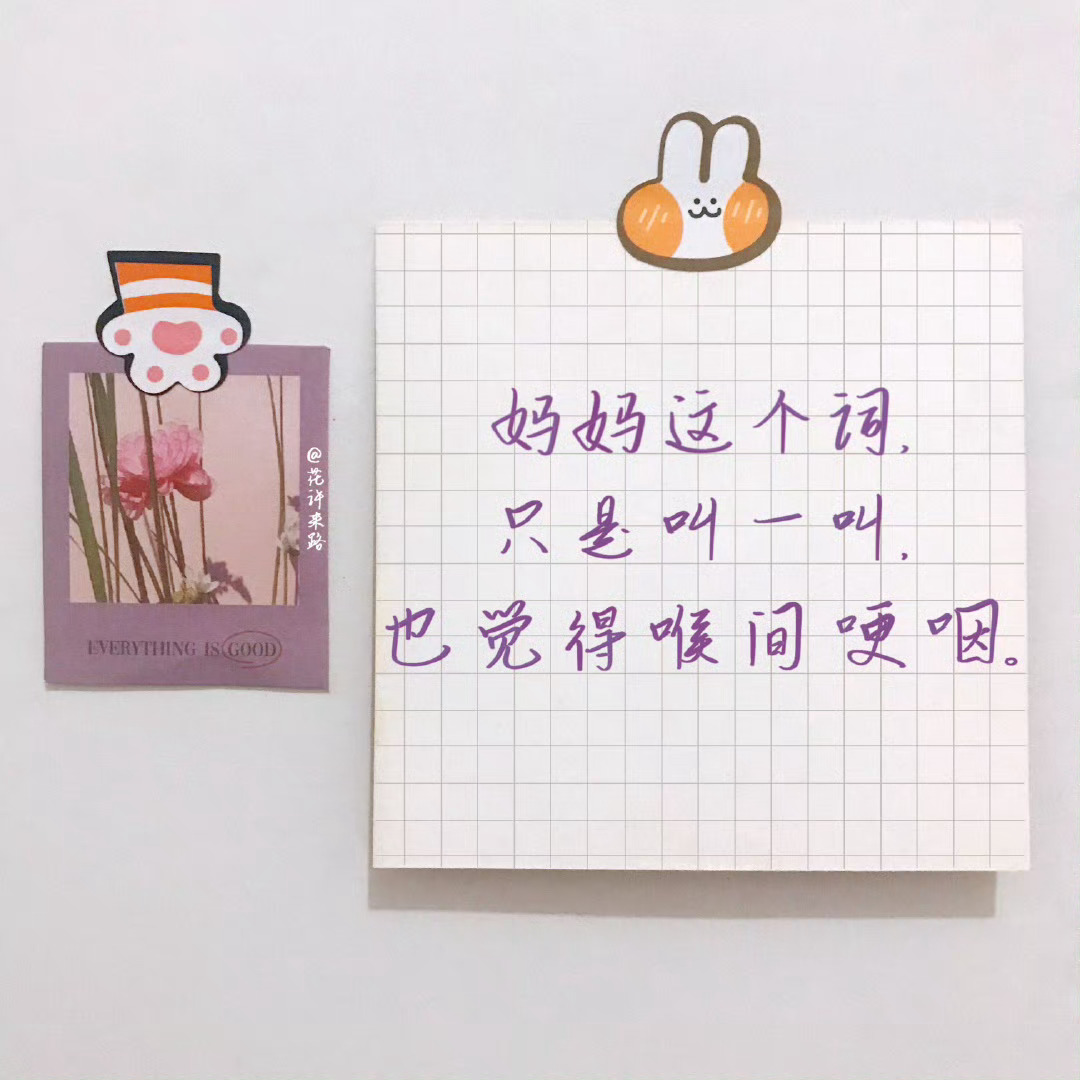 妈妈这个词,
只是叫一叫,
也觉得喉间哽咽。
@花许来路
EVERYTHING IS GOOD